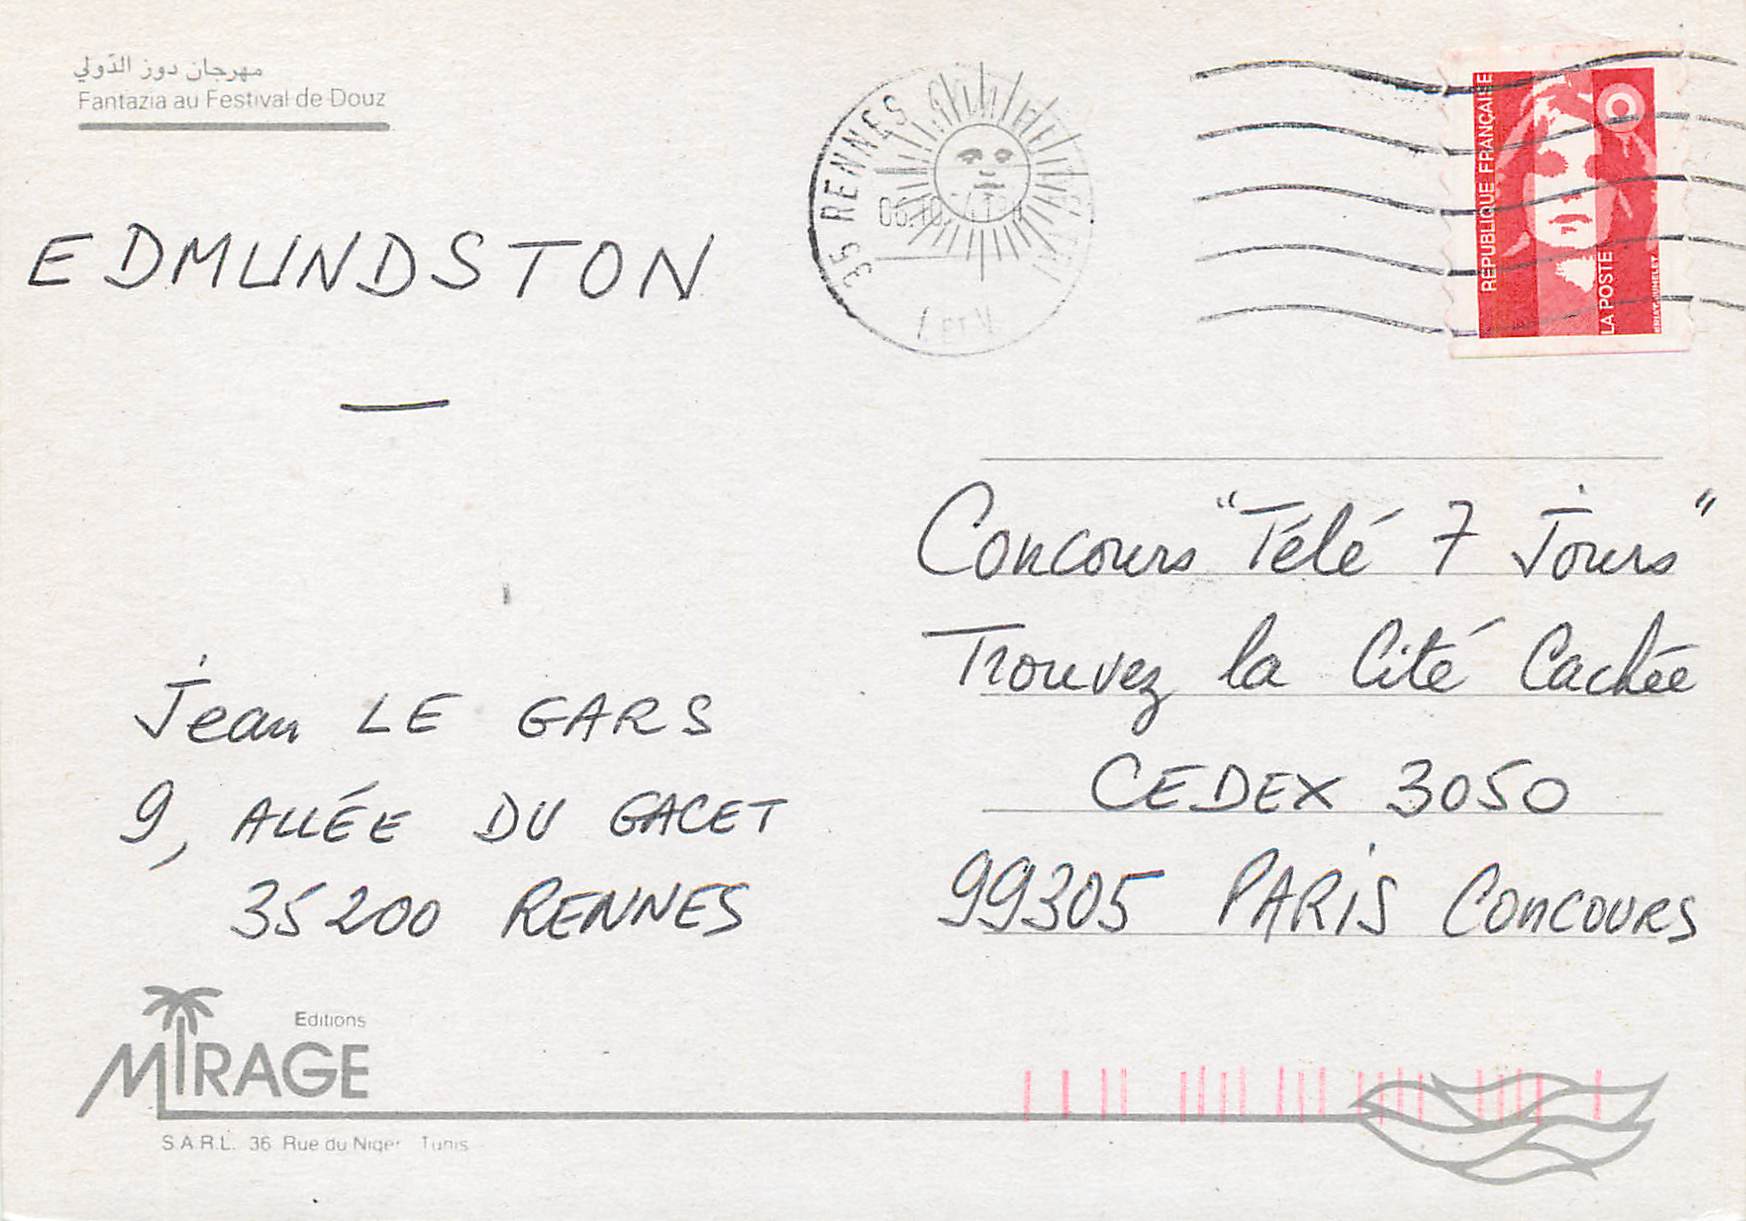 مهرجان دوز الدّولي
Fantazia au Festival de Douz
EDMUNDSTON
35 RENNES
REPUBLIQUE FRANÇAISE
LA POSTE
Concours "Télé 7 Jours"
Trouvez la Cité Cachée
CEDEX 3050
99305 PARIS CONCOURS
Jean LE GARS
9, ALLÉE DU GACET
35200 RENNES
Editions
MIRAGE
S.A.R.L. 36 Rue du Niger Tunis